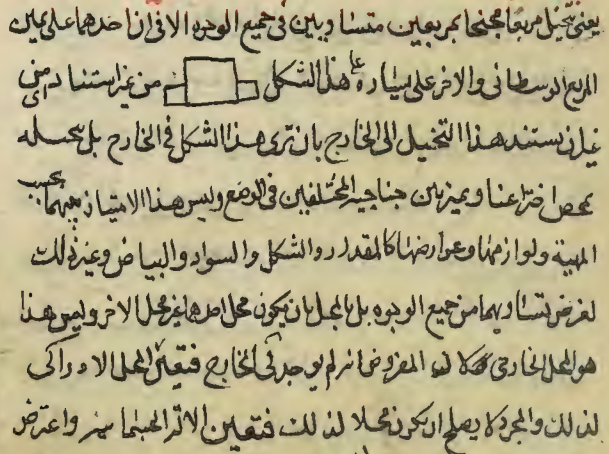 يعنى نتخيل مربعا مجنحا بمربعين متساويين فى جميع الوجوه الا فى ان احدهما على يمين
المربع الوسطانى والاخر على يساره على هذا الشكل من غير استناد اى من
غير ان يستند هذا التخيل الى الخارج بان نرى هذا الشكل فى الخارج بل نتخيله
بمحض اختراعنا ونميز بين جناحيه المختلفين فى الوضع وليس هذا الامتياز بينهما بحسب
المهية ولوازمها وعوارضها كالمقدار والشكل والسواد والبياض وغير ذلك
لفرض تساويهما من جميع الوجوه بل بالمحل بان يكون محل احدهما غير محل الاخر وليس هذا
هو المحل الخارجى لان المفروض انه لم يوجد فى الخارج فتعين المحل الادراكى
لذلك والمجرد لا يصلح ان يكون محلا لذلك فتعين الالة الجسمانية واعترض